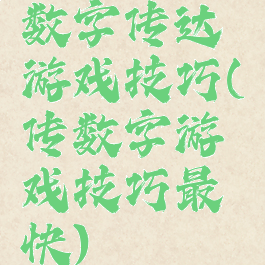 数字传达
游戏技巧(
传数字游
戏技巧最
快)